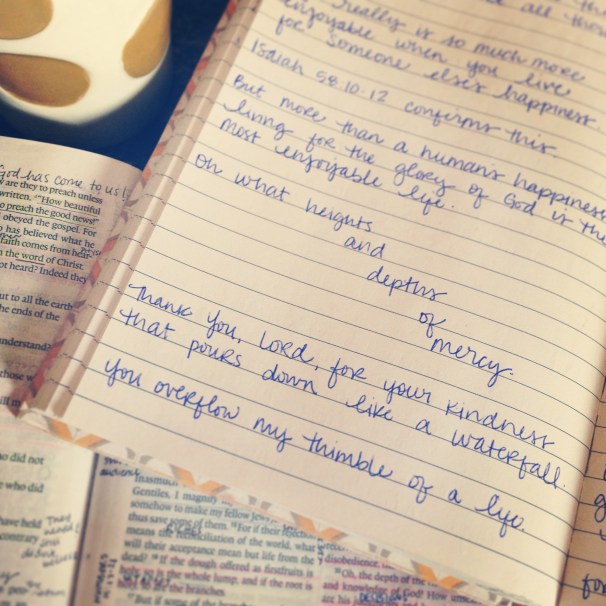 really is so much more
enjoyable when you live
for someone else's happiness.
Isaiah 58:10-12 confirms this.
But more than a human's happiness
living for the glory of God is the
most enjoyable life.
Oh what heights
and
depths
of
mercy.
Thank you, LORD, for your kindness
that pours down like a waterfall.
You overflow my thimble of a life.
God has come to us!
are they to preach unless
written, "How beautiful
preach the good news!"
obeyed the gospel. For
has believed what he
faith comes from
the word of Christ.
not heard? Indeed they
out to all the earth
the ends of the
understand
those
did not
who did
have held
contrary
Inasmuch
Gentiles, I magnify
somehow to make my fellow Jews
thus save some of them. For if their rejection
means the reconciliation of the world, what
will their acceptance mean but life from the
dead? If the dough offered as firstfruits is
holy, so is the whole lump, and if the root is
so are the branches.
But if some of the
disobedience,
Oh, the depth of the
and knowledge of God! How
are his